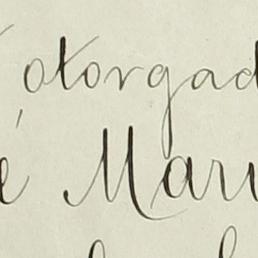 otorgad
é Mari